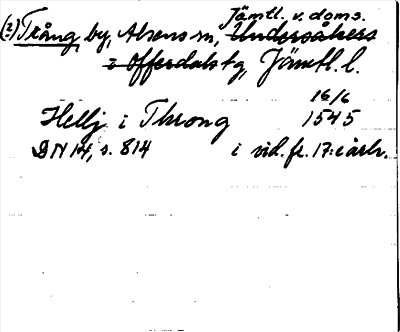 Jämtl. v. doms.
(2) Trång, by, Alsens sn, Undersåkers
o Offerdals tg, Jämtl. l.
16/6
Hellj i Throng 1545
DN 14, s. 814 i vid. fr. 17:e årh.